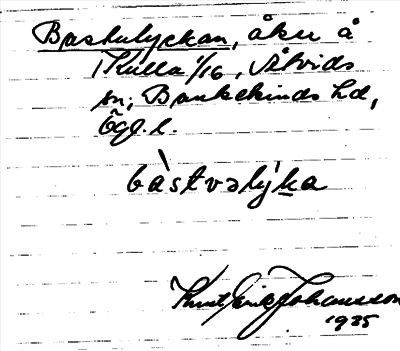 Bastulyckan, åker å
Kulla 1/16, Åtvids
sn, Bankekinds hd,
Ög. l.
bàstvəlýka
Knut Erik Johansson
1935